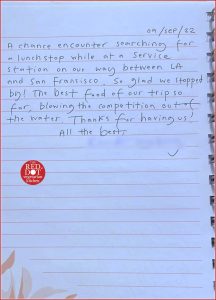 09/Sep/22
A chance encounter searching for
a lunchstop while at a Service
station on our way between LA
and San Fransisco. So glad we stopped
by! The best food of our trip so
far, blowing the competition out of
the water. Thanks for having us!
All the best,
RED
DOT
vegetarian
kitchen